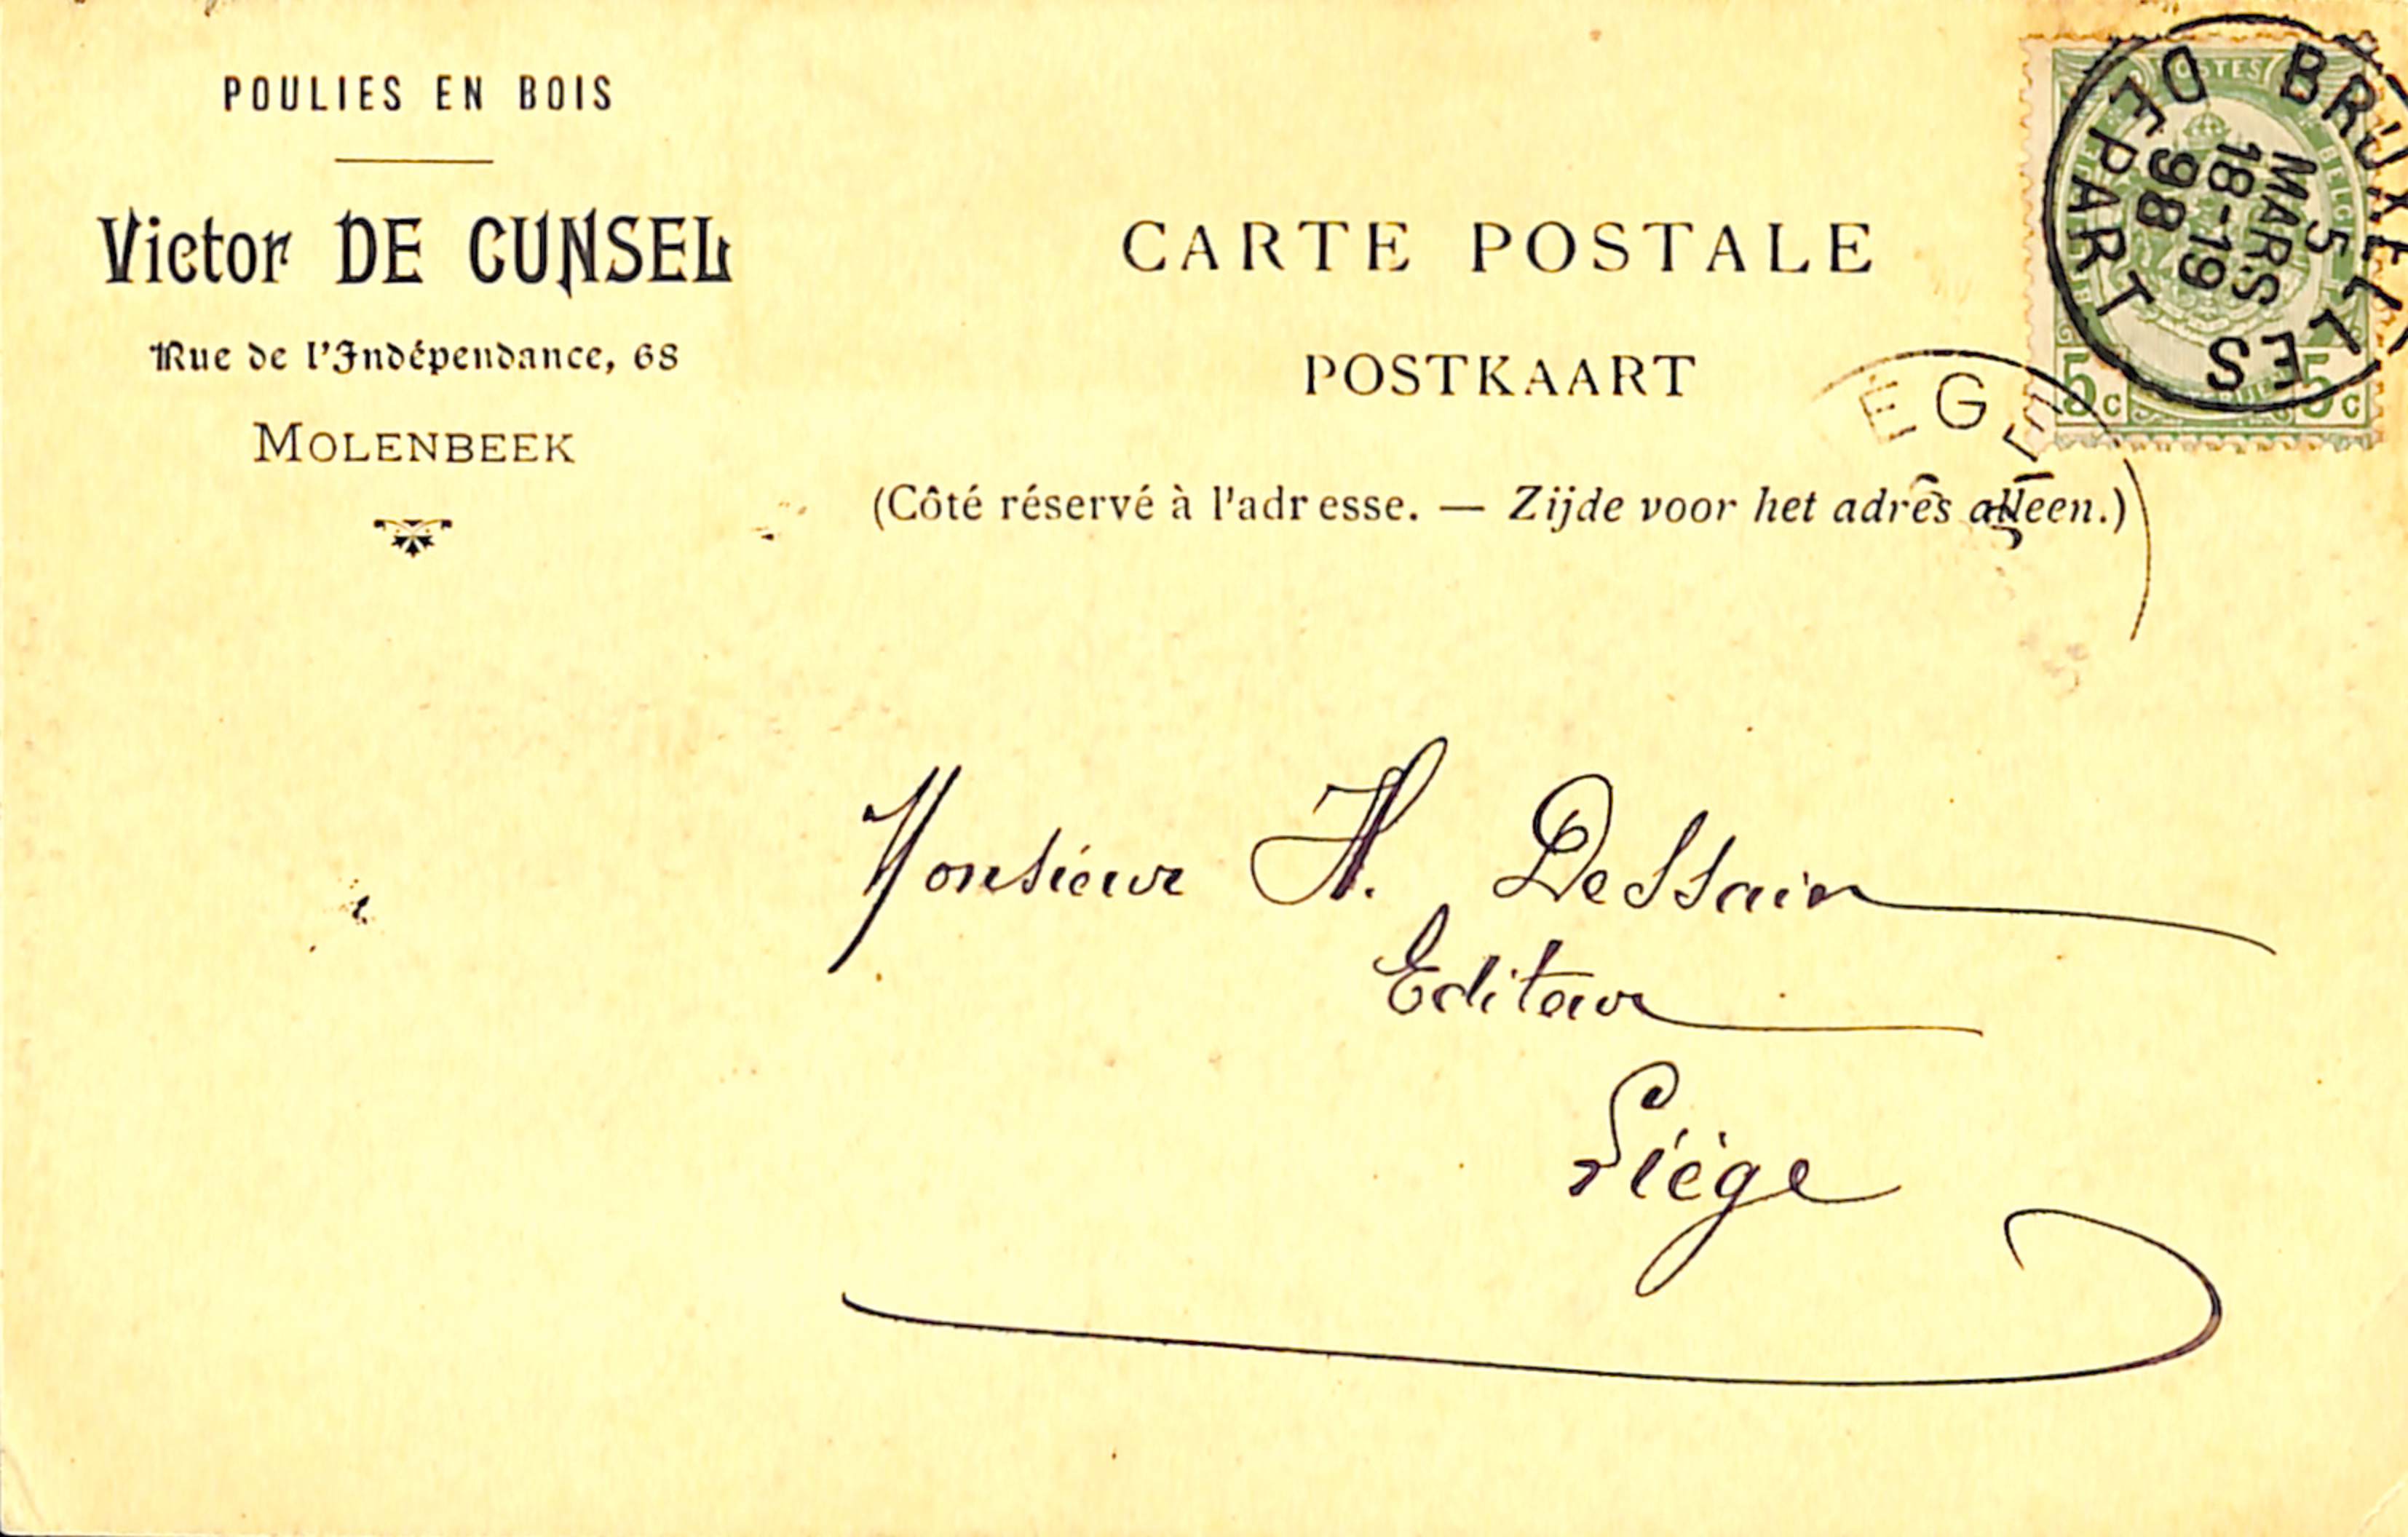 POULIES EN BOIS
Victor DE CUNSEL
Rue de l'Indépendance, 68
MOLENBEEK
CARTE POSTALE
POSTKAART
(Côté réservé à l'adresse. — Zijde voor het adres alleen.)
POSTES
5c 5c
BRUXELLES
5
MARS
18-19
98
DEPART
ÉGE
Monsieur H. Dessain
Editeur
Liége